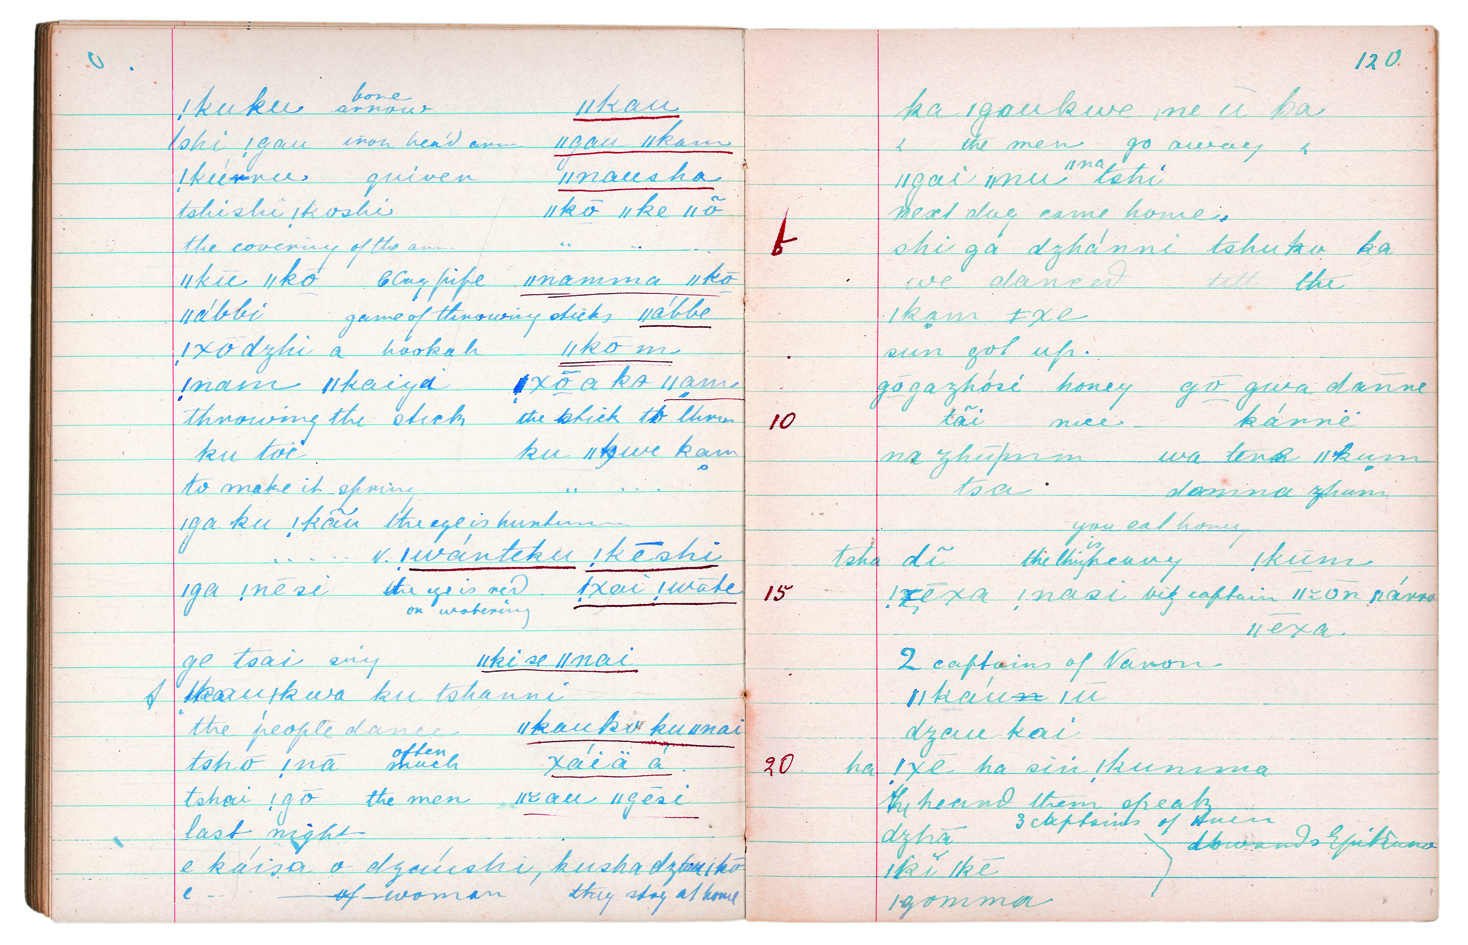 0
!kuku bone arrow ǁkau
/shi !gau iron head arrow ǁgau ǁkam
quiver ǁnausha
tshishi !koshi ǁkō ǁke ǁõ
the covering of the arrow
ǁkū ǁkō Clay pipe ǁnamma ǁkō
ǁábbi game of throwing sticks ǁábbe
!xōdzhi a hookah ǁkōm
!nam ǁkaiya !xõ a ko ǁam
throwing the stick the stick to throw
ku toi ku kwe kam
to make it spring
ǀga ku !kãu the eye is hurt
v. !wánteku !kēshi
ǀga !nēsi the eye is red !xai !wāte
on watering
ge tsai sing ǁkise ǁnai
ku tshanni
the people dance ǁkauko kuǁnai
tsho !nā often much xáiä á
tshai !gō the men ǁau ǁgēsi
last night
e káisa o dzaushi, kusha
of woman they stay at home
120.
ka ǀgaukwe ǀne ū ka
" the men go away "
ǁgai ǁnu ǁna tshi
next day came home.
5 shi ga dzhánni tshuko ka
we danced till the
ǀkam ǂxe
sun got up.
gōgazhósi honey gō gwa danne
10 tãi nice kánnië
na zhúpmm wa ǁkum
tsa damna zhum
you eat honey
tsha dĩ the thing is heavy !kūm
15 !xēxa !nasi big captain
ǁēxa.
2 captains of Naron
ǁkáu ǀū
dzau kai
20 ha !xē ha sin !kumma
They heard them speak
dzhā 3 Captains of Auen
towards Epikiro
ǀkū ǀkē
ǀgomma